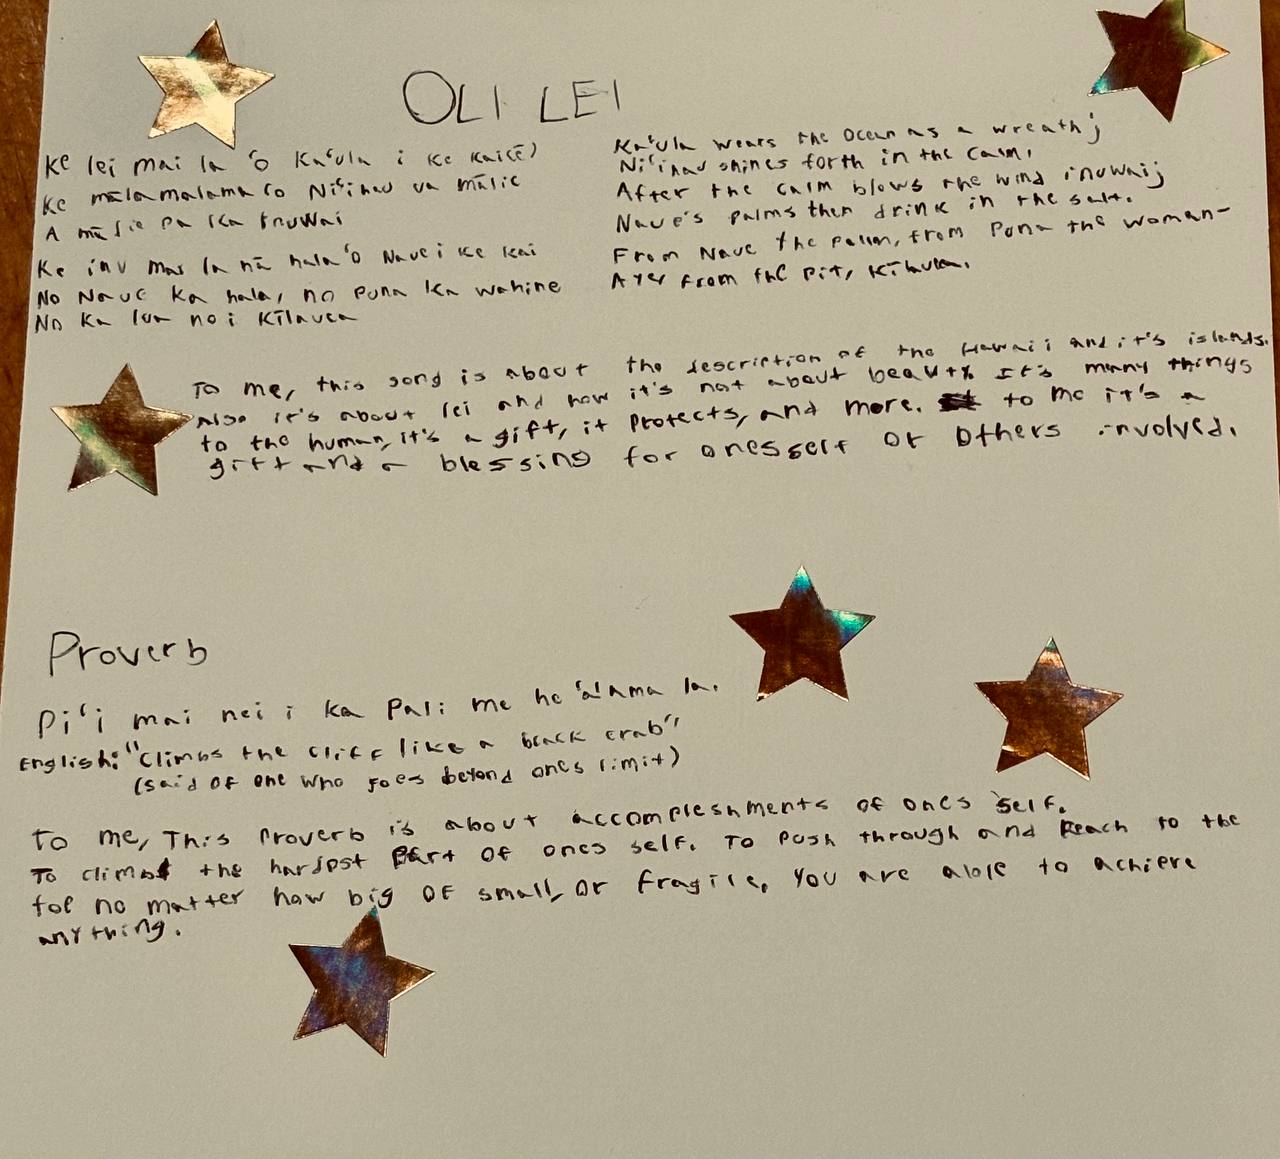 OLI LEI
Ke lei mai la ʻo Kaʻula i ke kai ē)
Ke mālamalama ʻo Niʻihau ua mālie
A mālie pa ka Inuwai
Ke inu mai la nā hala ʻo Naue i ke kai
No Naue ka hala, no puna ka wahine
No ka lua no i Kīlauea
Kaʻula wears the ocean as a wreath;
Niʻihau shines forth in the calm.
After the calm blows the wind inuwai;
Naue's palms then drink in the salt.
From Naue the palm, from Puna the woman-
Ayer from the pit, Kīlauea.
To me, this song is about the description of the Hawaii and it's islands.
Also it's about lei and how it's not about beauty It's many things
to the human, it's a gift, it protects, and more. to me it's a
gift and a blessing for onesself or others involved.
Proverb
Piʻi mai nei i ka pali me he ʻaʻama la.
English: "Climbs the cliff like a black crab"
(said of one who goes beyond ones limit)
To me, This proverb is about accompleshments of ones self.
To climb the hardest part of ones self. To push through and reach to the
top no matter how big or small, or fragile. You are able to achieve
anything.